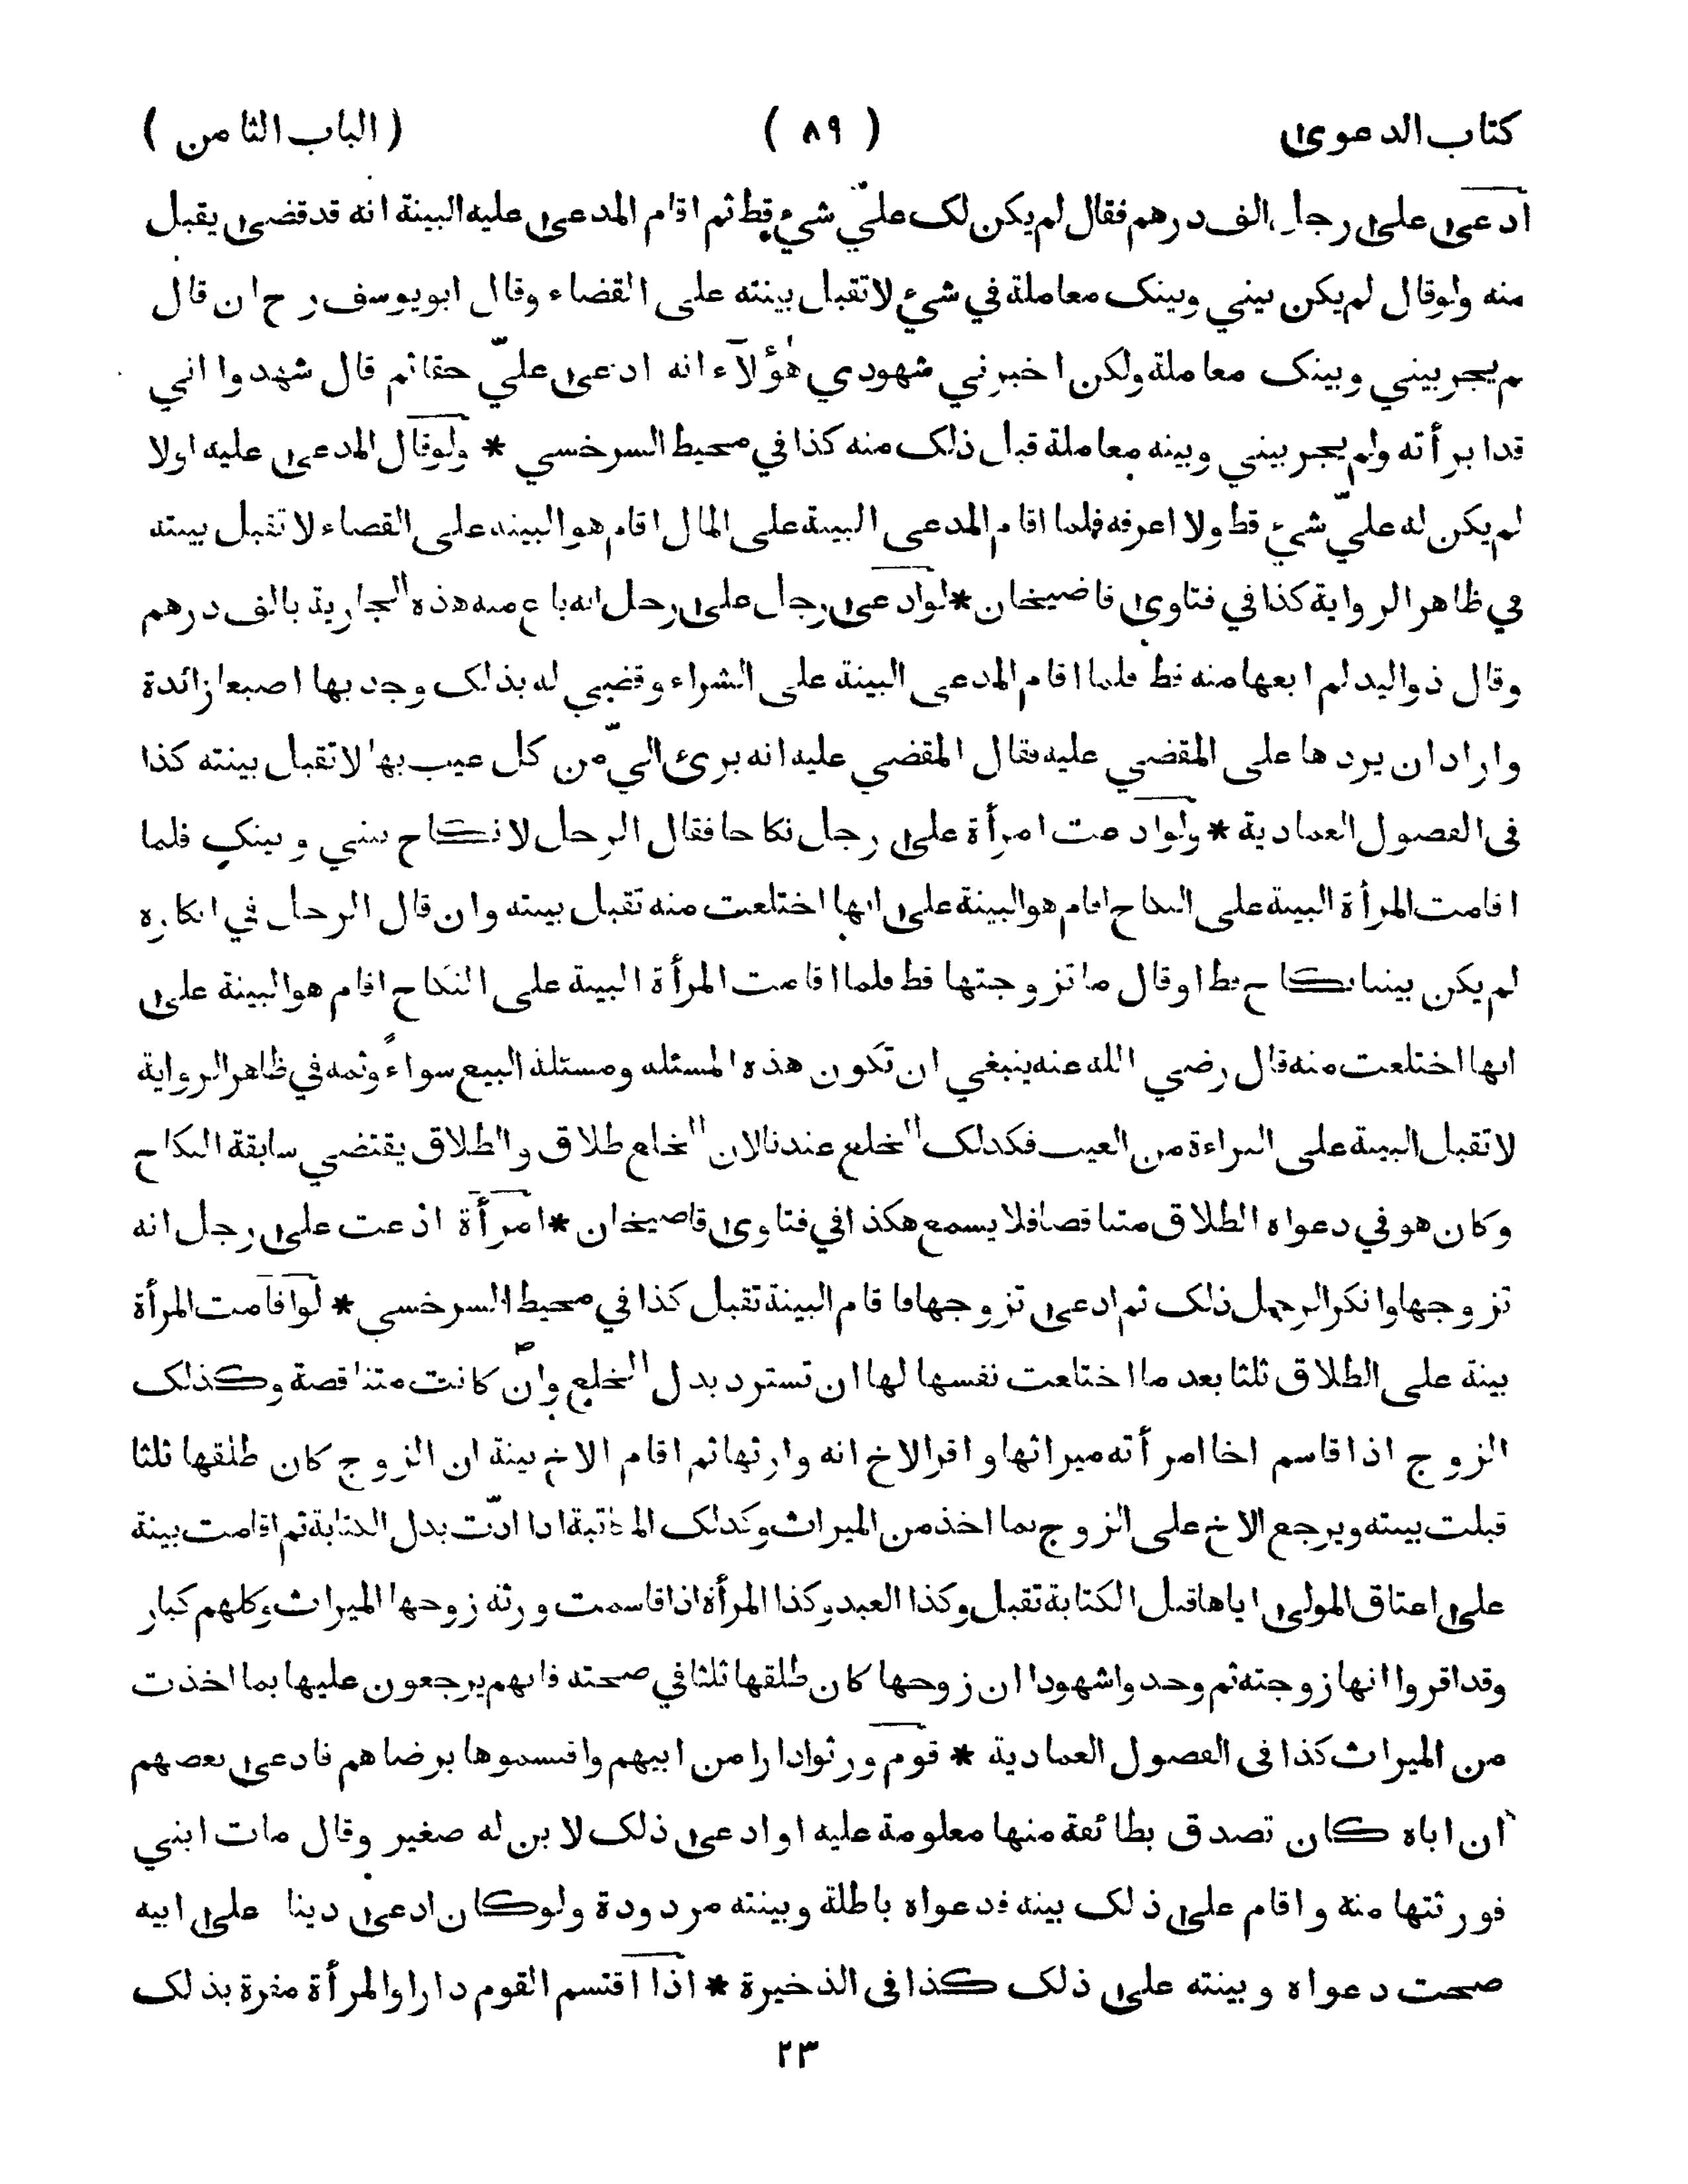 كتاب الدعوى ( ٨٩ ) ( الباب الثامن )
ادعى على رجل الف درهم فقال لم يكن لك عليّ شيء قط ثم اقام المدعى عليه البينة انه قد قضى يقبل
منه ولوقال لم يكن بيني وبينك معاملة في شيء لا تقبل بينته على القضاء وقال ابويوسف رح ان قال
م يجر بيني وبينك معاملة ولكن اخبرني شهودي هٰؤلآء انه ادعى عليّ حقا ثم قال شهدوا اني
قد ابرأته ولم يجر بيني وبينه معاملة قبل ذلك منه كذا في محيط السرخسي * ولوقال المدعى عليه اولا
لم يكن له عليّ شيء قط ولا اعرفه فلما اقام المدعي البينة على المال اقام هو البينه على القضاء لا تقبل بينته
في ظاهر الرواية كذا في فتاوى قاضيخان * لوادعى رجل على رجل انه باع منه هذه الجارية بالف درهم
وقال ذواليد لم ابعها منه قط فلما اقام المدعي البينة على الشراء وقضي له بذلك وجد بها اصبعا زائدة
واراد ان يردها على المقضي عليه فقال المقضي عليه انه برئ اليّ من كل عيب بها لا تقبل بينته كذا
في الفصول العمادية * ولوادعت امرأة على رجل نكاحا فقال الرجل لا نكاح بيني وبينك فلما
اقامت المرأة البينة على النكاح اقام هو البينة على انها اختلعت منه تقبل بينته وان قال الرجل في انكاره
لم يكن بيننا نكاح قط اوقال ما تزوجتها قط فلما اقامت المرأة البينة على النكاح اقام هو البينة على
انها اختلعت منه قال رضي الله عنه ينبغي ان تكون هذه المسئله ومسئلة البيع سواءً وثمه في ظاهر الرواية
لا تقبل البينة على البراءة من العيب فكذلك الخلع عندنا لان الخلع طلاق والطلاق يقتضي سابقة النكاح
وكان هو في دعواه الطلاق متناقضا فلا يسمع هكذا في فتاوى قاضيخان * امرأة ادعت على رجل انه
تزوجها وانكر الرجل ذلك ثم ادعى تزوجها فاقام البينة تقبل كذا في محيط السرخسي * لواقامت المرأة
بينة على الطلاق ثلثا بعد ما اختلعت نفسها لها ان تسترد بدل الخلع وان كانت متناقضة وكذلك
الزوج اذا قاسم اخا امرأته ميراثها واقر الاخ انه وارثها ثم اقام الاخ بينة ان الزوج كان طلقها ثلثا
قبلت بينته ويرجع الاخ على الزوج بما اخذ من الميراث وكذلك المكاتبة اذا ادّت بدل الكتابة ثم اقامت بينة
على اعتاق المولى اياها قبل الكتابة تقبل وكذا العبد وكذا المرأة اذا قاسمت ورثة زوجها الميراث وكلهم كبار
وقد اقروا انها زوجته ثم وجدوا شهودا ان زوجها كان طلقها ثلثا في صحته فانهم يرجعون عليها بما اخذت
من الميراث كذا في الفصول العمادية * قوم ورثوا دارا من ابيهم واقتسموها برضاهم فادعى بعضهم
ان اباه كان تصدق بطائفة منها معلومة عليه او ادعى ذلك لابن له صغير وقال مات ابني
فورثتها منه واقام على ذلك بينه فدعواه باطلة وبينته مردودة ولوكان ادعى دينا على ابيه
صحت دعواه وبينته على ذلك كذا في الذخيرة * اذا اقتسم القوم دارا والمرأة مقرة بذلك
٢٣